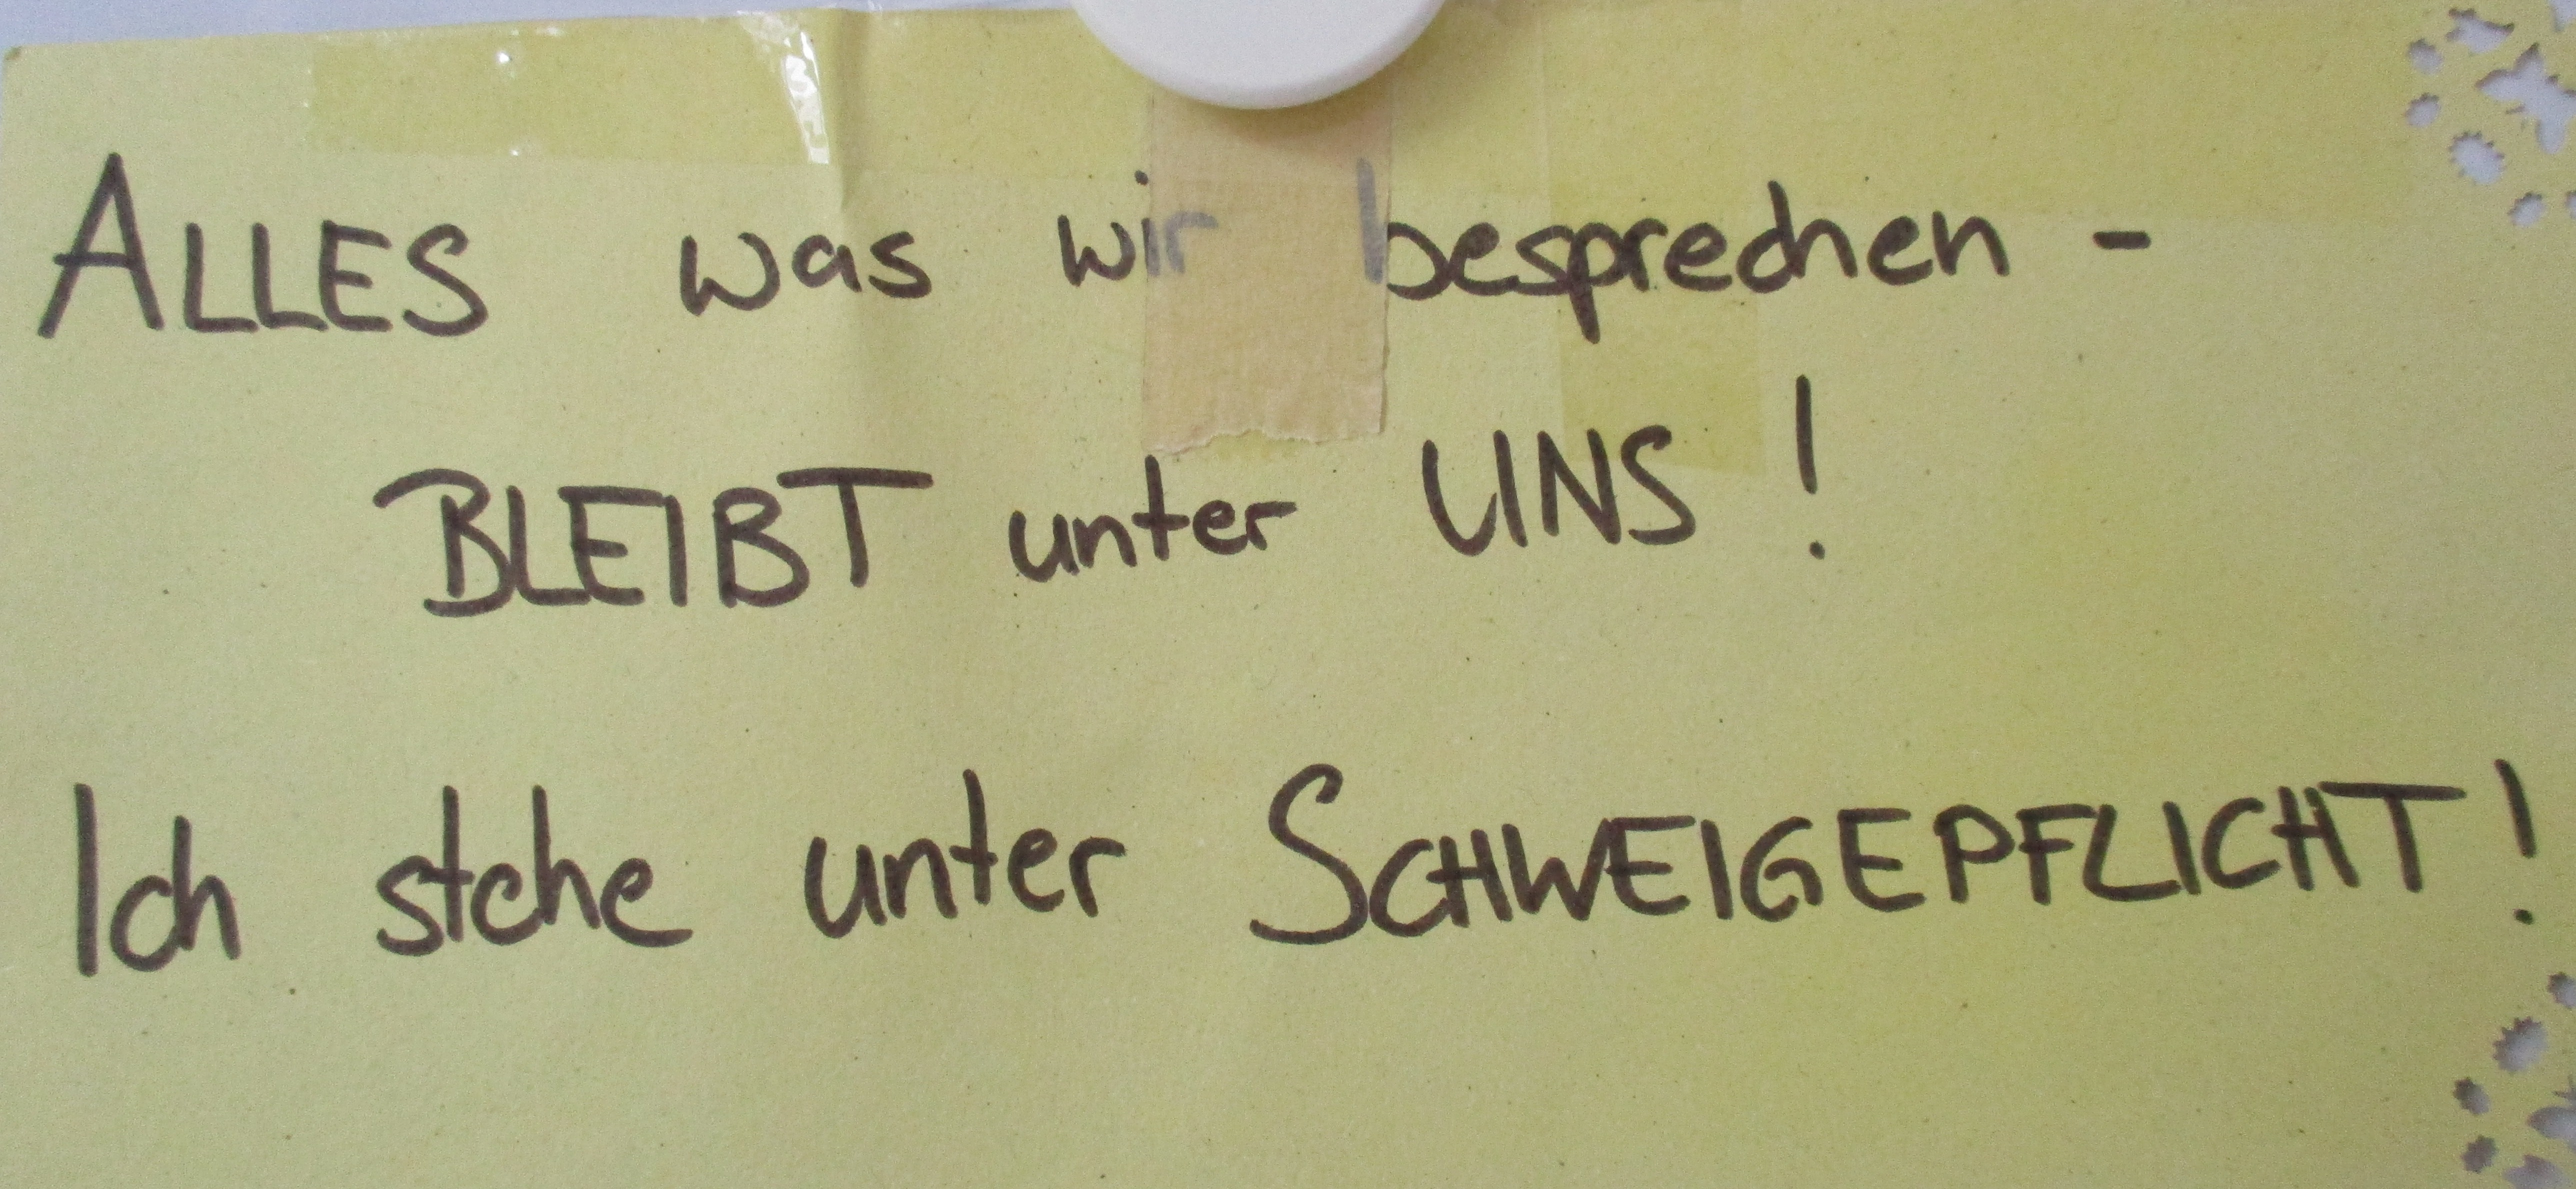 ALLES was wir besprechen -
BLEIBT unter UNS !
Ich stehe unter SCHWEIGEPFLICHT !